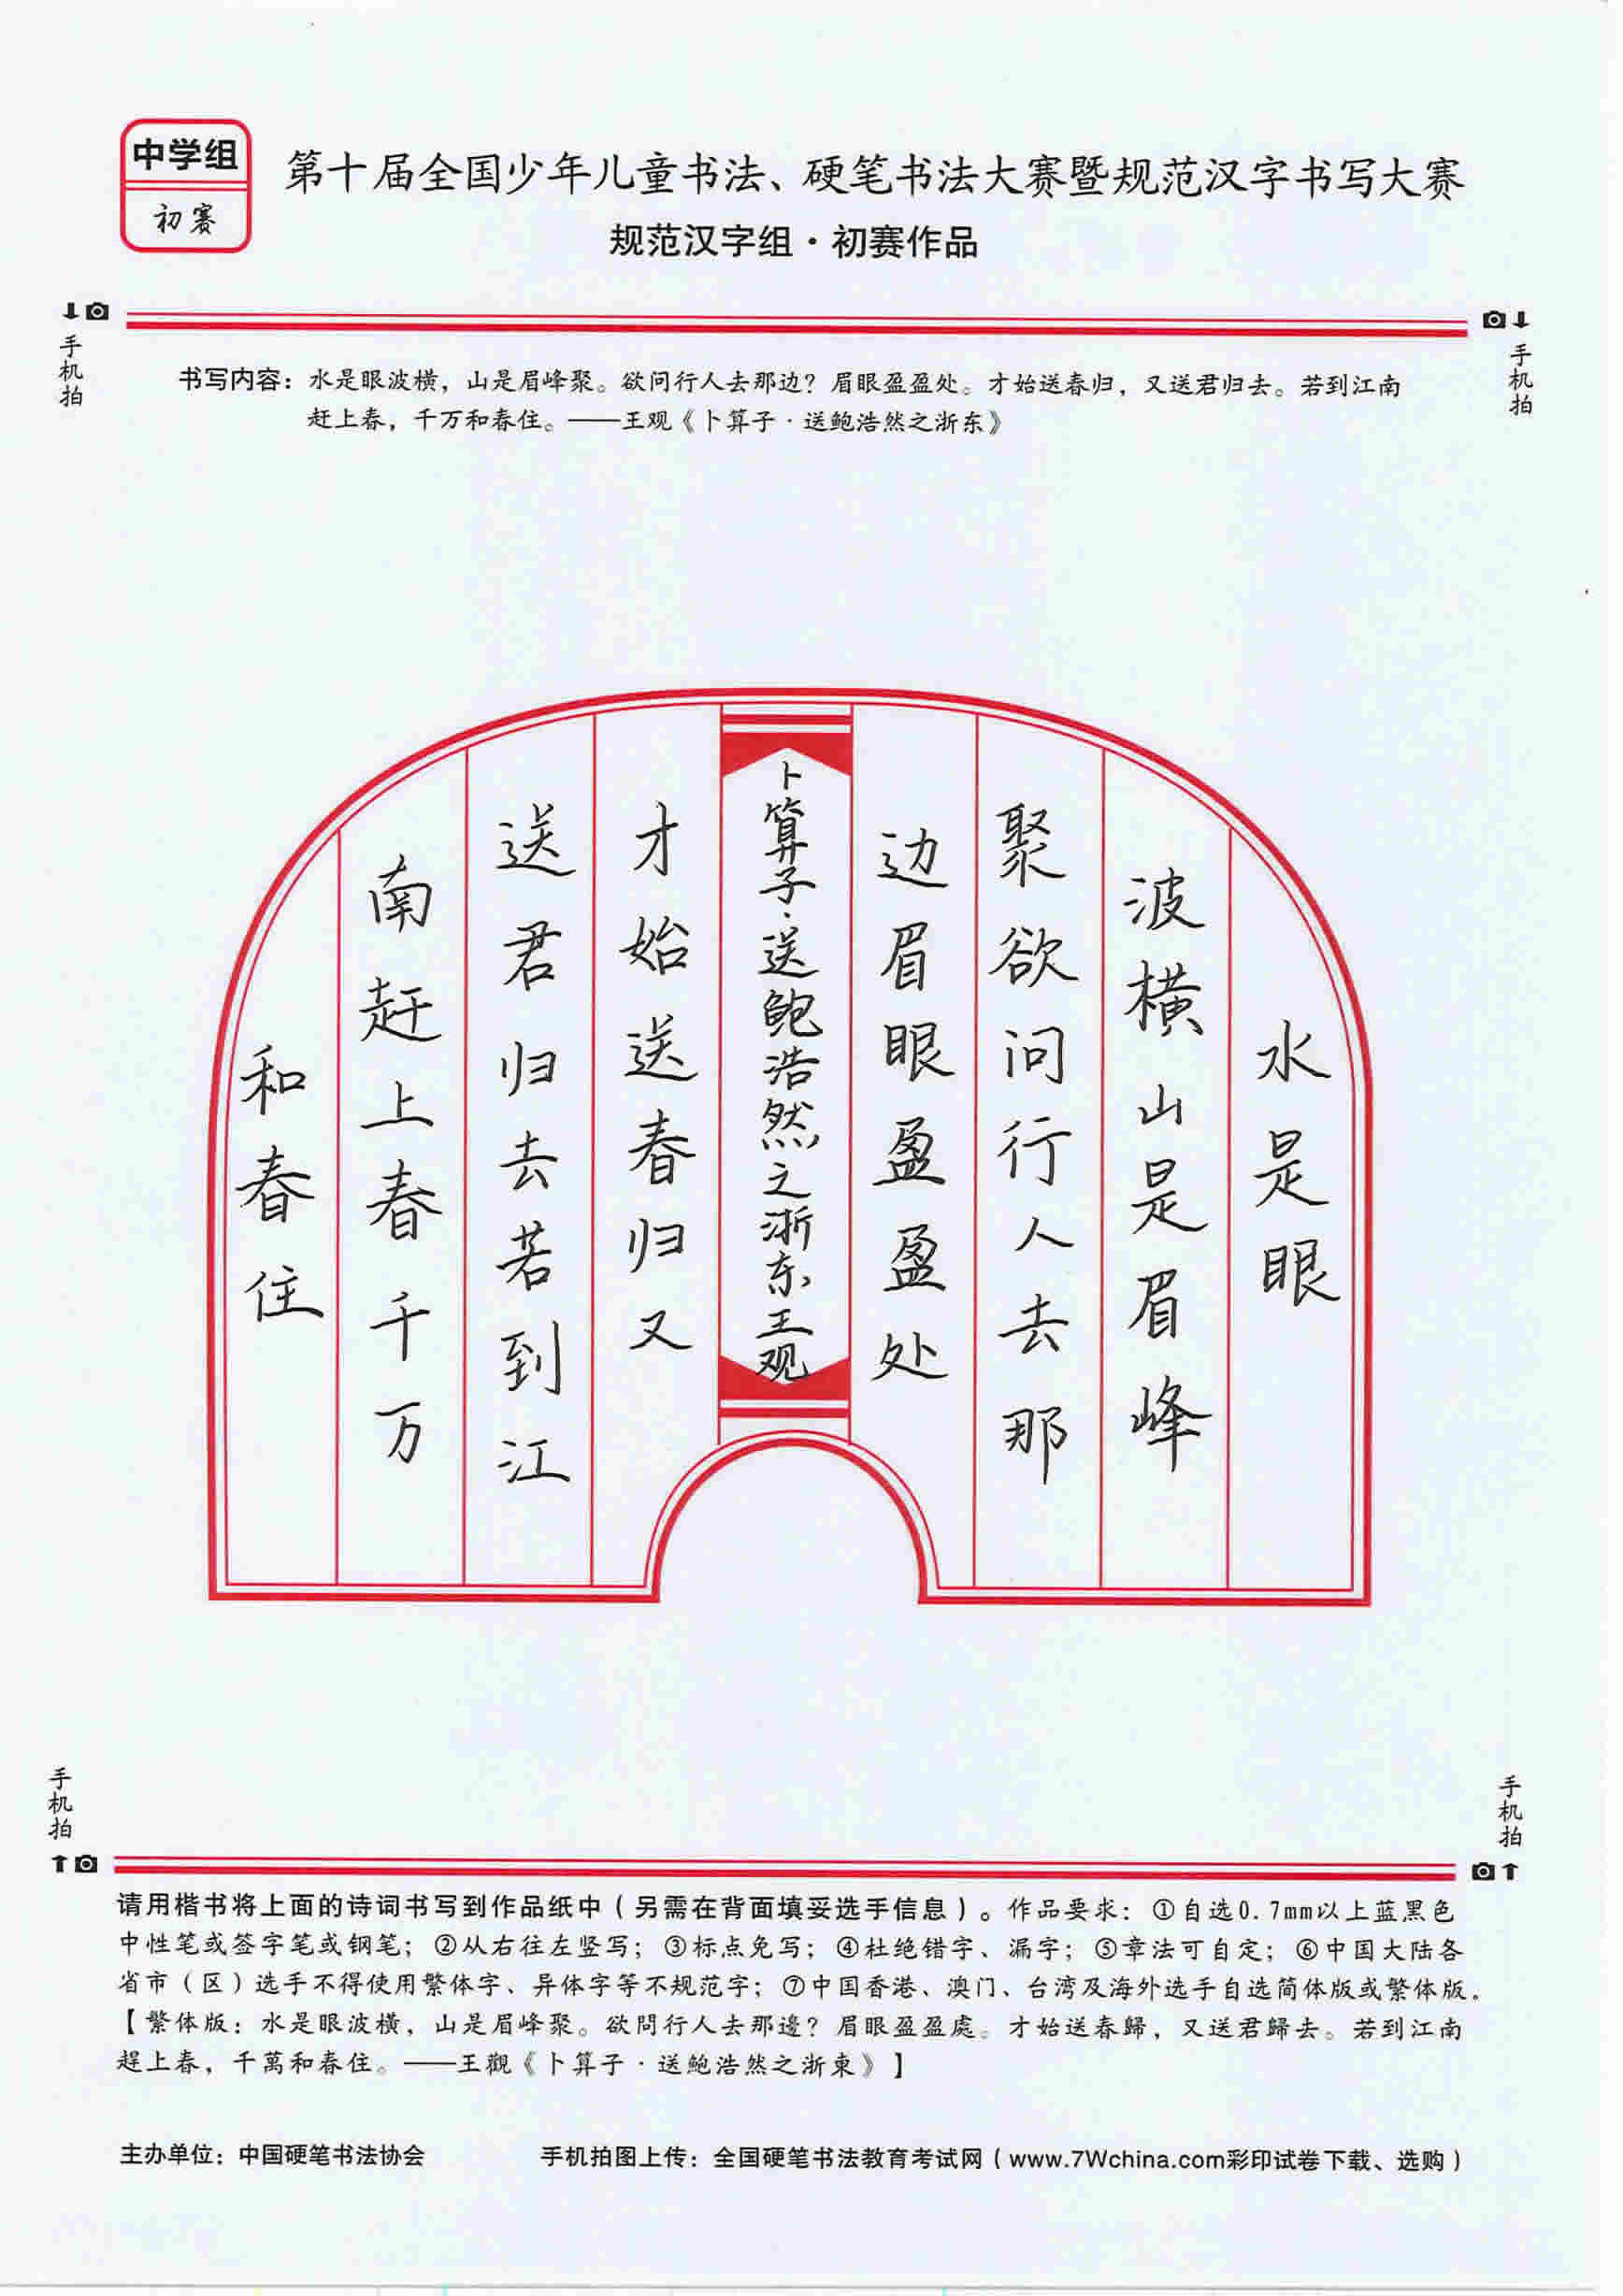 中学组
初赛
第十届全国少年儿童书法、硬笔书法大赛暨规范汉字书写大赛
规范汉字组·初赛作品
手机拍
手机拍
书写内容：水是眼波横，山是眉峰聚。欲问行人去那边？眉眼盈盈处。才始送春归，又送君归去。若到江南
赶上春，千万和春住。——王观《卜算子·送鲍浩然之浙东》
水是眼
波横山是眉峰
聚欲问行人去那
边眉眼盈盈处
卜算子·送鲍浩然之浙东王观
才始送春归又
送君归去若到江
南赶上春千万
和春住
手机拍
手机拍
请用楷书将上面的诗词书写到作品纸中（另需在背面填妥选手信息）。作品要求：①自选0.7mm以上蓝黑色
中性笔或签字笔或钢笔；②从右往左竖写；③标点免写；④杜绝错字、漏字；⑤章法可自定；⑥中国大陆各
省市（区）选手不得使用繁体字、异体字等不规范字；⑦中国香港、澳门、台湾及海外选手自选简体版或繁体版。
【繁体版：水是眼波横，山是眉峰聚。欲問行人去那邊？眉眼盈盈處。才始送春歸，又送君歸去。若到江南
趕上春，千萬和春住。——王觀《卜算子·送鲍浩然之浙東》】
主办单位：中国硬笔书法协会
手机拍图上传：全国硬笔书法教育考试网（www.7Wchina.com彩印试卷下载、选购）